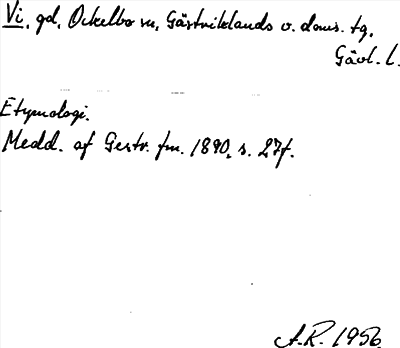 Vi, gd, Ockelbo sn, Gästriklands ö. doms. tg,
Gävl. l.
Etymologi.
Medd. af Gestr. fm. 1890, s. 27f.
A.R. 1956